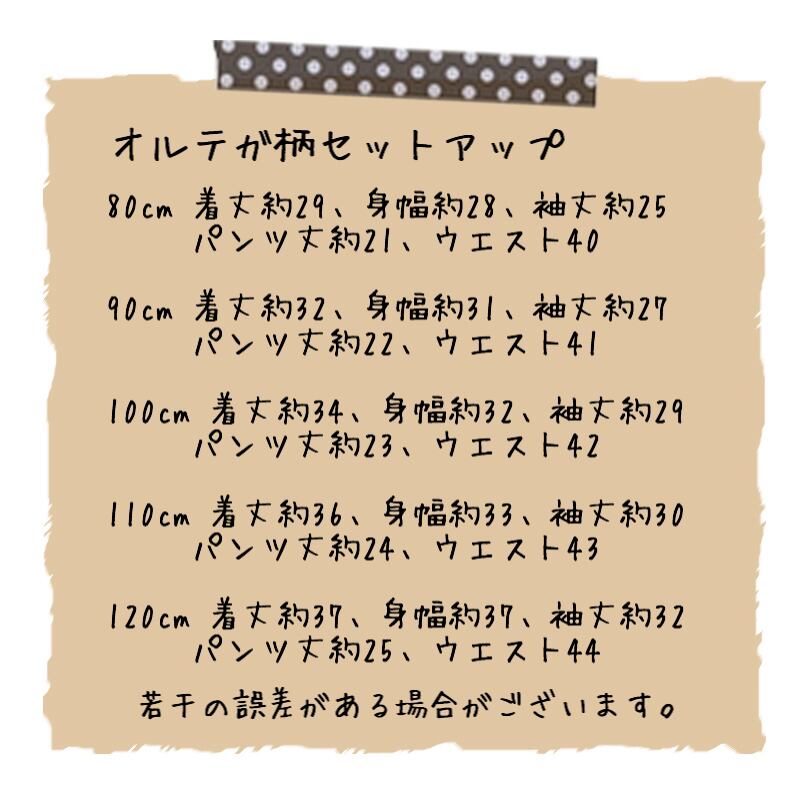 オルテガ柄セットアップ
80cm 着丈約29、身幅約28、袖丈約25
パンツ丈約21、ウエスト40
90cm 着丈約32、身幅約31、袖丈約27
パンツ丈約22、ウエスト41
100cm 着丈約34、身幅約32、袖丈約29
パンツ丈約23、ウエスト42
110cm 着丈約36、身幅約33、袖丈約30
パンツ丈約24、ウエスト43
120cm 着丈約37、身幅約37、袖丈約32
パンツ丈約25、ウエスト44
若干の誤差がある場合がございます。